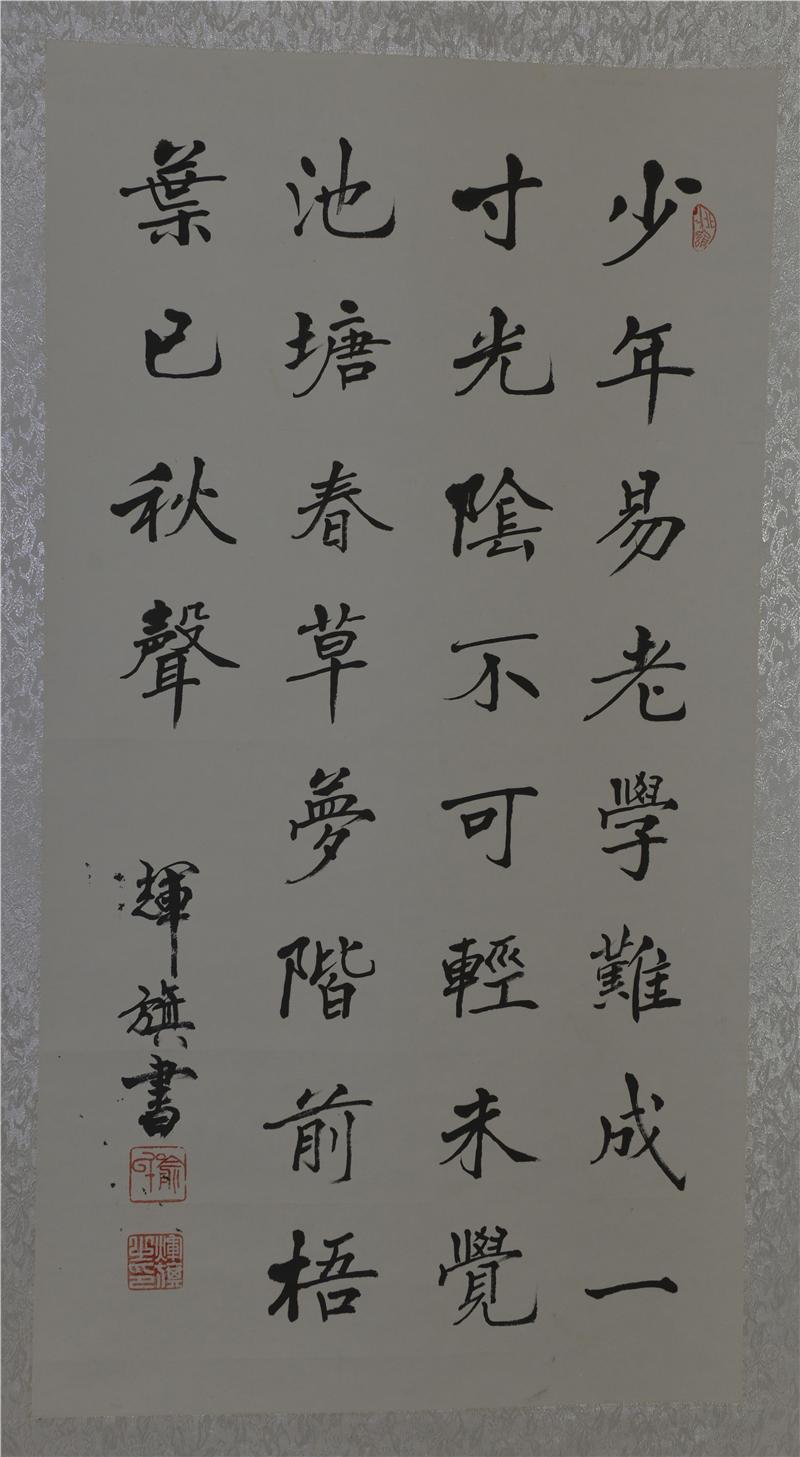 少年易老學難成一
寸光陰不可輕未覺
池塘春草夢階前梧
葉已秋聲
輝旗書